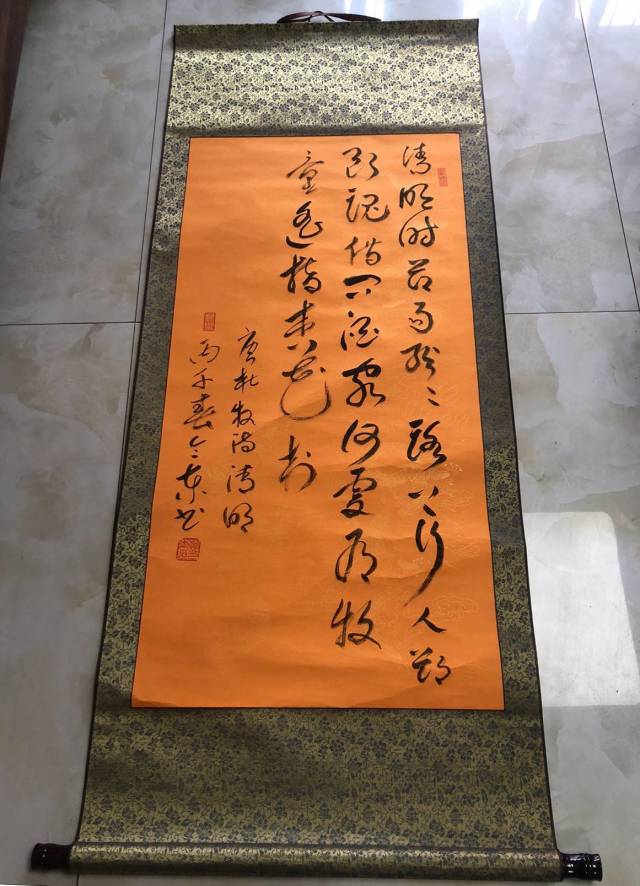 清明时节雨纷纷路上行人欲
断魂借问酒家何处有牧
童遥指杏花村
唐杜牧诗清明
丙午春东书